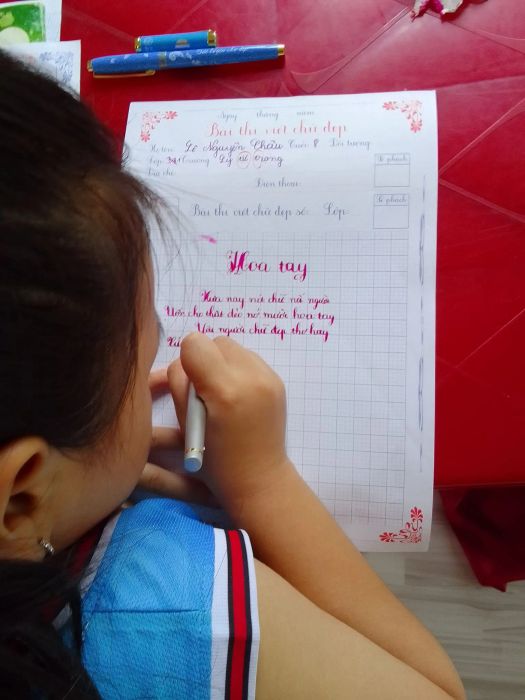 Ngày tháng năm
Bài thi viết chữ đẹp
Họ tên: Lê Nguyên Châu Tuổi: 8 Đối tượng
Lớp: 3a1 Trường Lý tự trọng
Địa chỉ
Điện thoại:
Số phách
Bài thi viết chữ đẹp số: Lớp:
Số phách
Hoa tay
Xưa nay nét chữ nà người
Ước cho thật dẻo nở mười hoa tay
Yêu người chữ đẹp thơ hay